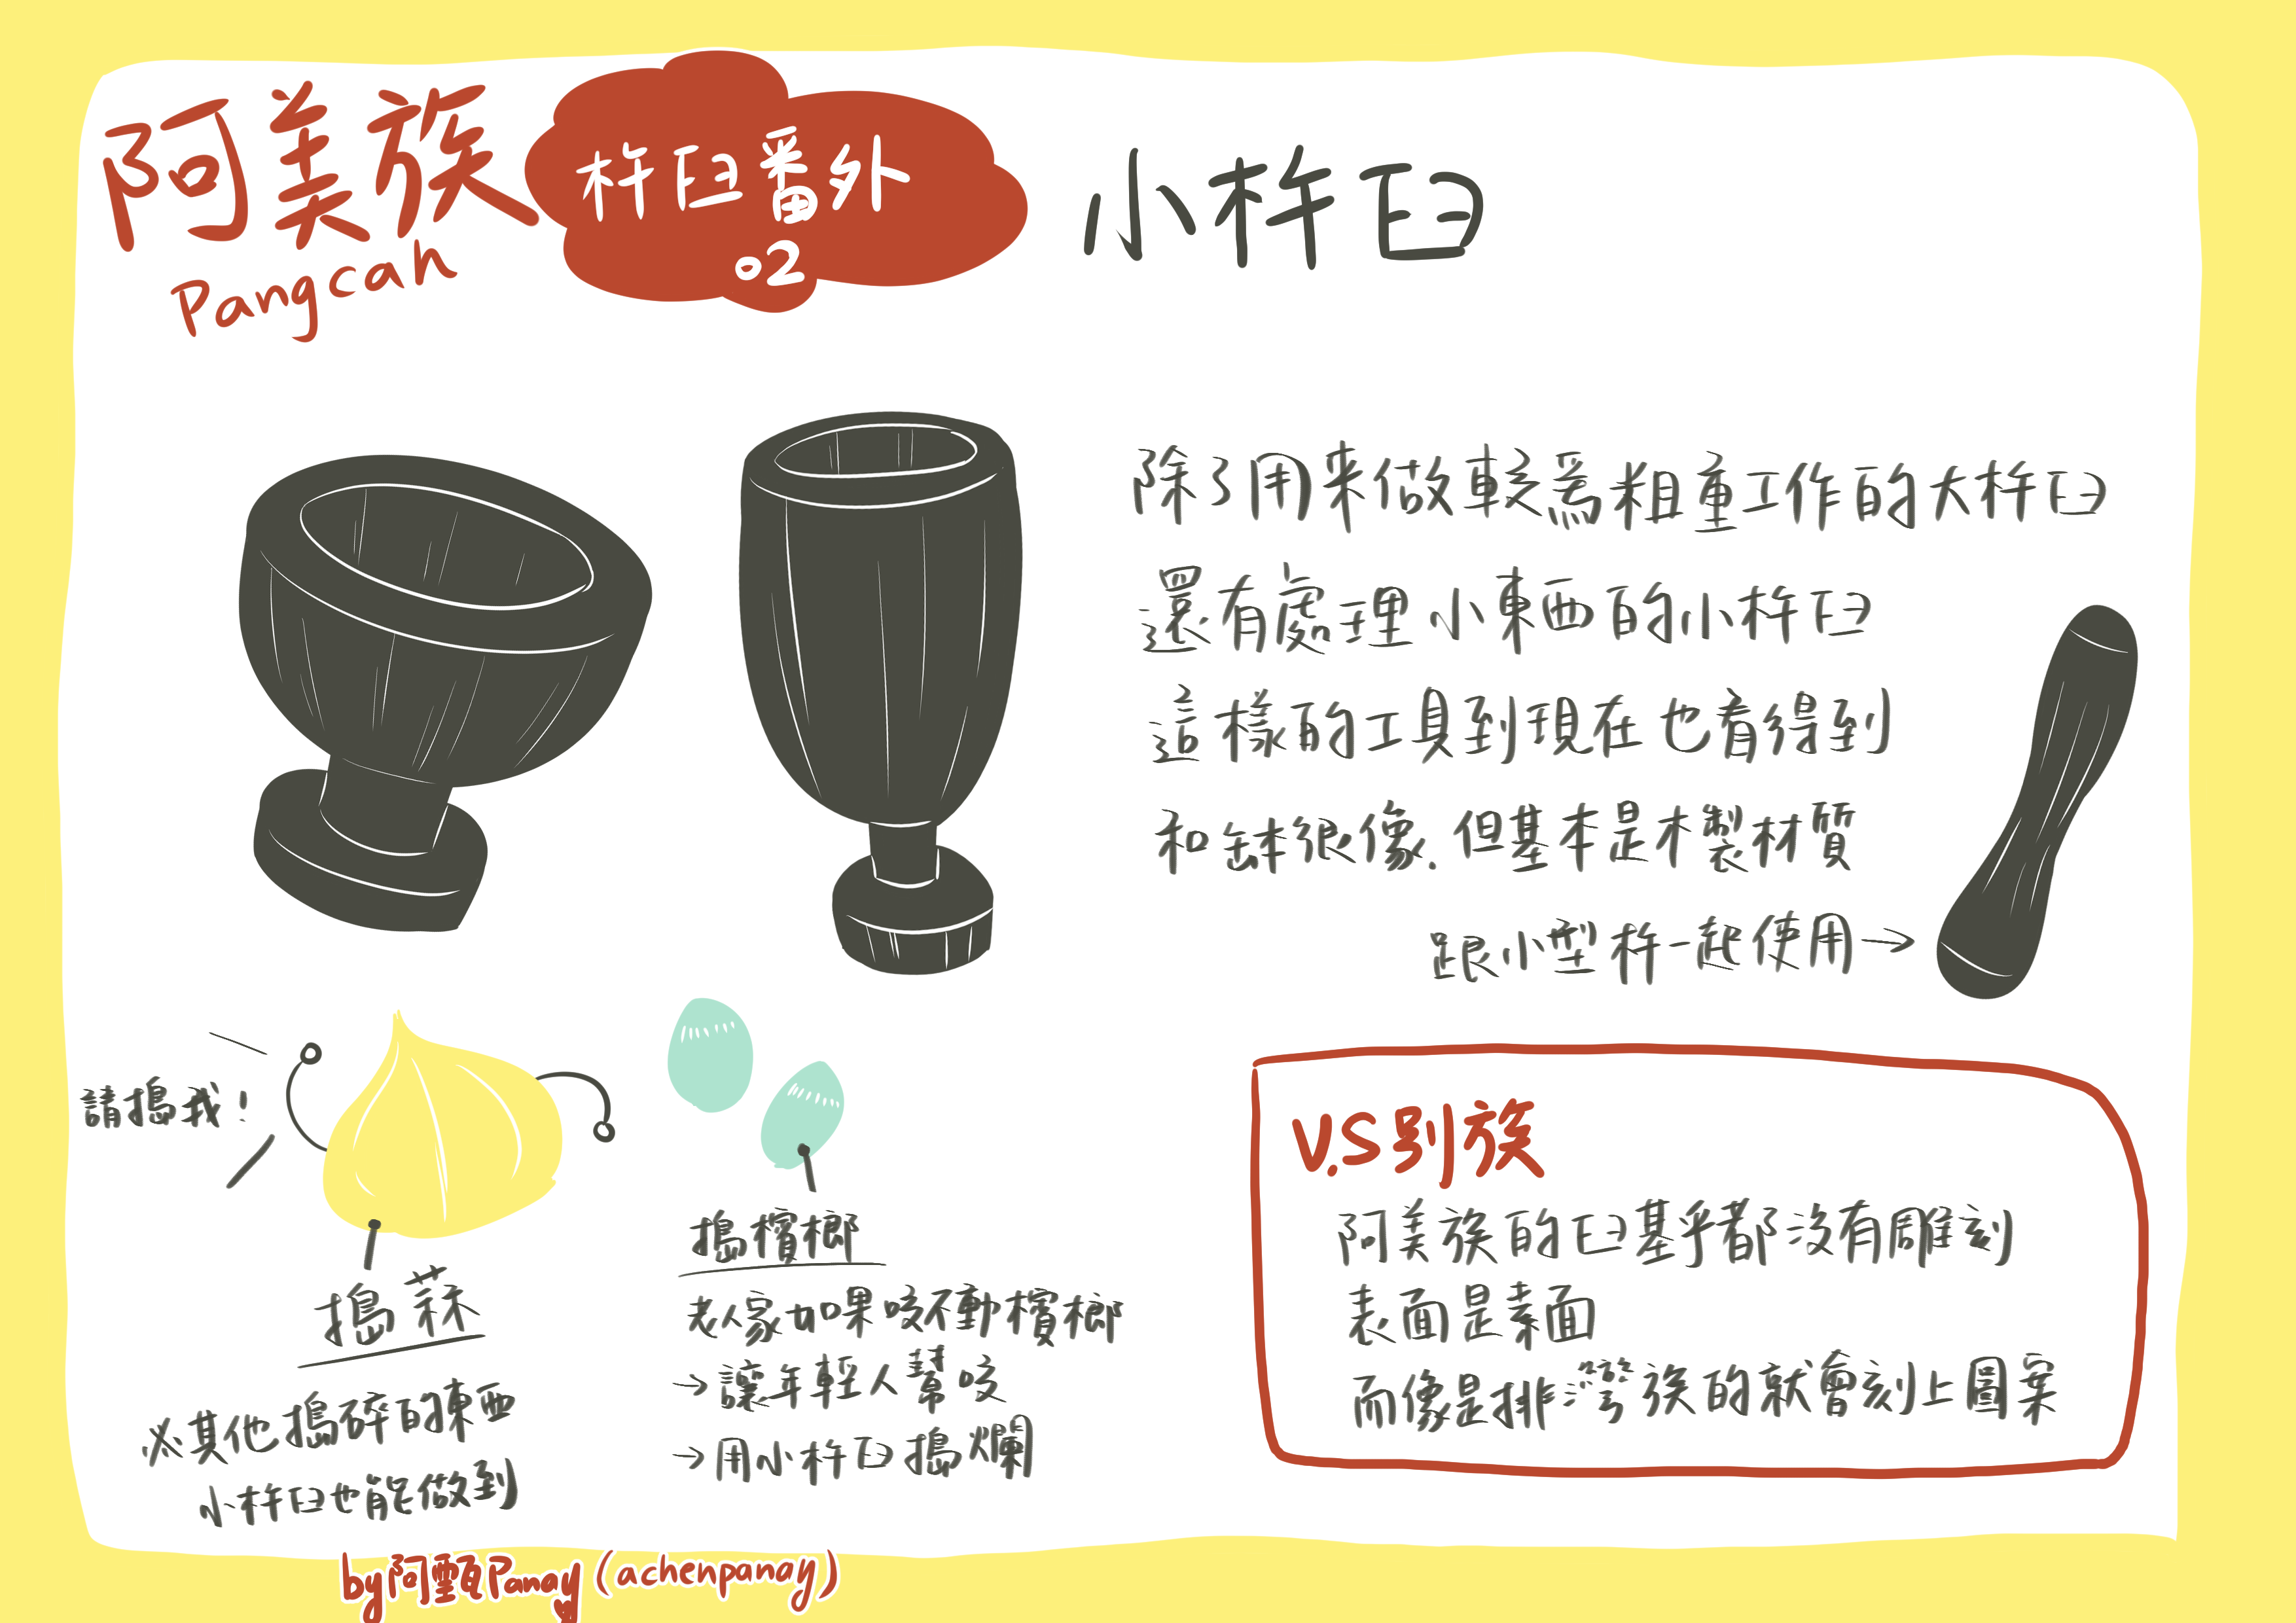 阿美族
Pangcah
杵臼番外
02
小杵臼
除了用来做較為粗重工作的大杵臼
還有處理小東西的小杵臼
這樣的工具到現在也看得到
和缽很像.但基本是木製材質
跟小型杵一起使用→
請搗我!
搗蒜
※其他搗碎的東西
小杵臼也能做到
搗檳榔
老人家如果咬不動檳榔
→讓年輕人幫咬
→用小杵臼搗爛
V.S別族
阿美族的臼基乎都沒有雕刻
表面是素面
而像是排灣族的就會刻上圖案
by阿甄Panay (achenpanay)